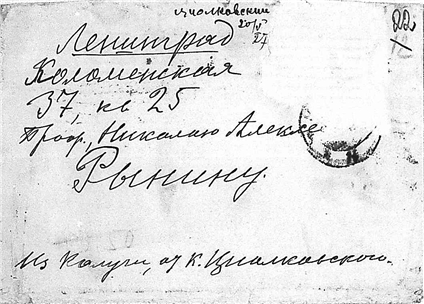 Циолковский
20/V
27
22
Ленинград
Коломенская
37, кв 25
Проф, Николаю Алексе
Рынину.
Из Калуги, от К. Циолковского.